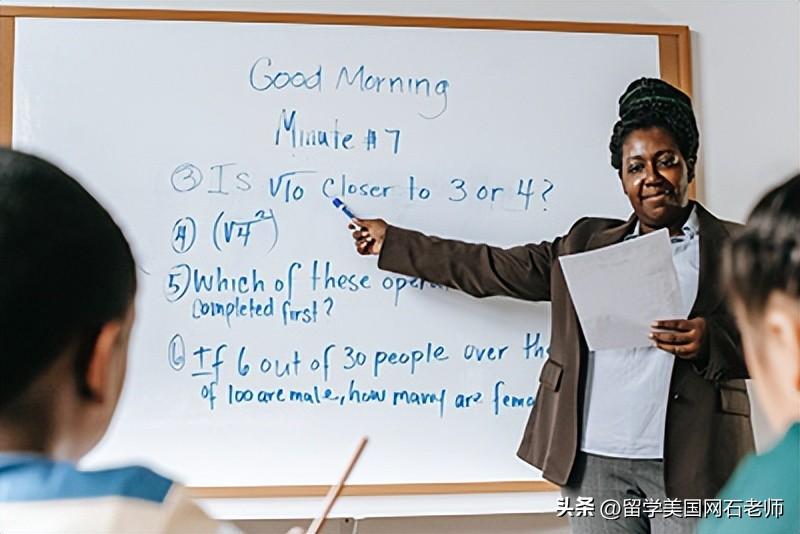 Good Morning
Minute #7
③ Is √10 closer to 3 or 4?
④ (√4²)
⑤ Which of these
completed first?
⑥ If 6 out of 30 people over the
of 100 are male, how many are
头条 @留学美国网石老师